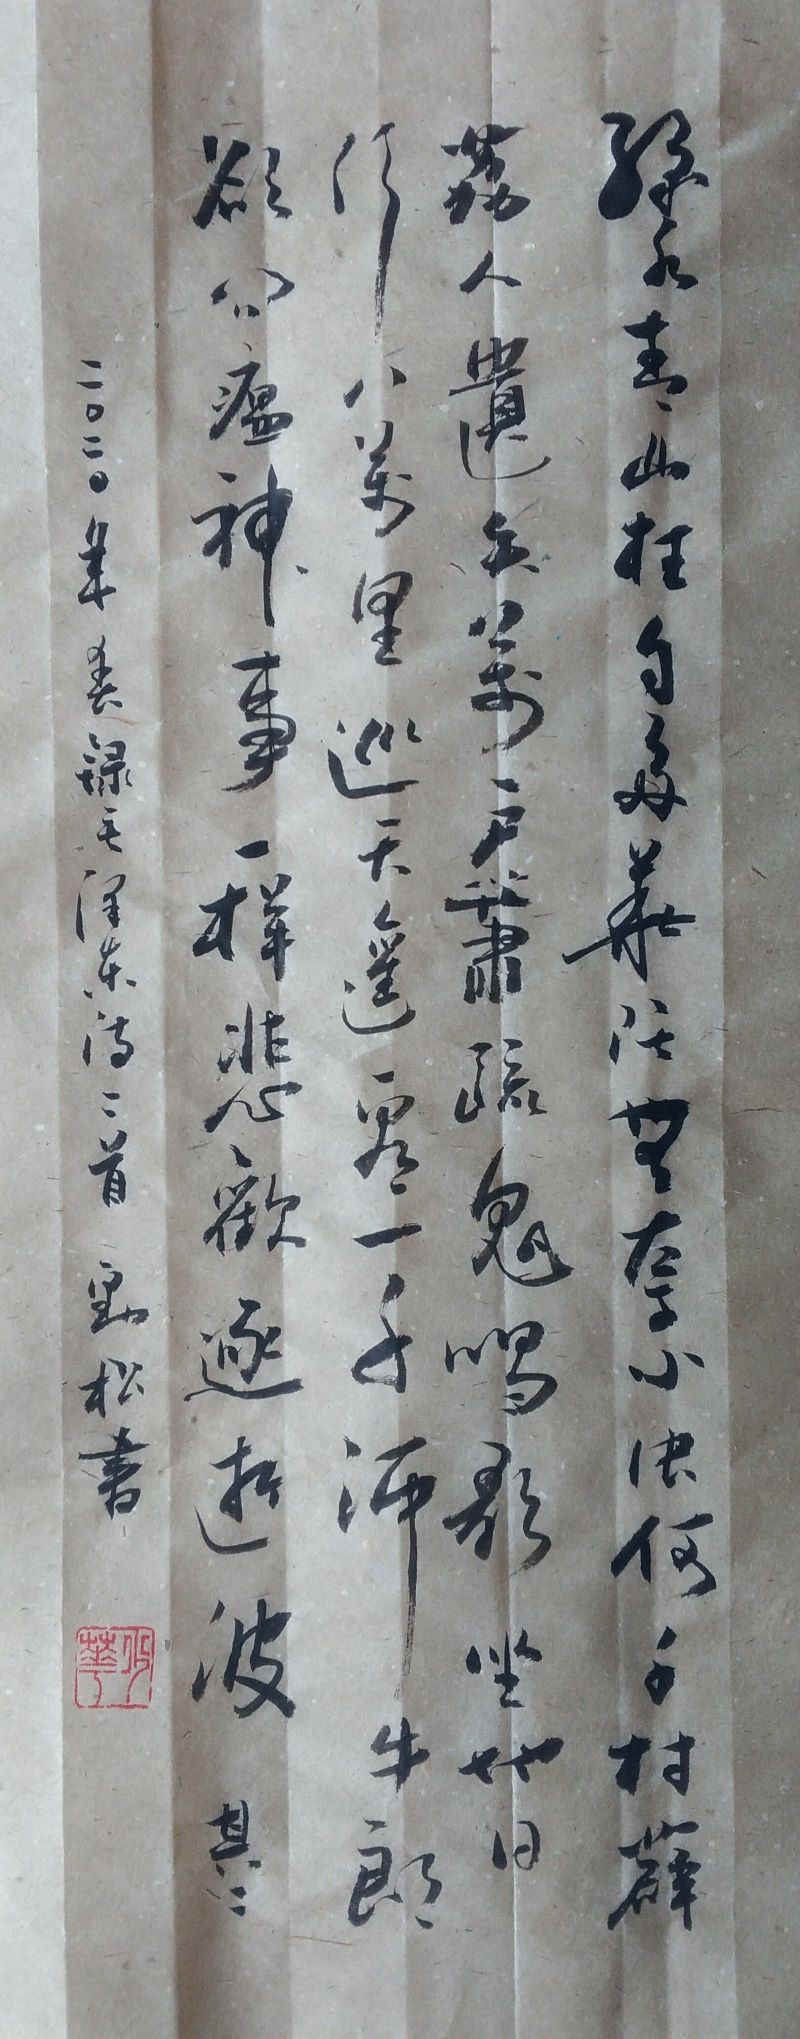 綠水青山枉自多華佗無奈小虫何千村薜
荔人遺矢萬戶蕭疏鬼唱歌坐地日
行八萬里巡天遙看一千河牛郎
欲问瘟神事一樣悲歡逐逝波 其二
二〇二〇年春録毛澤东诗二首 劉松書